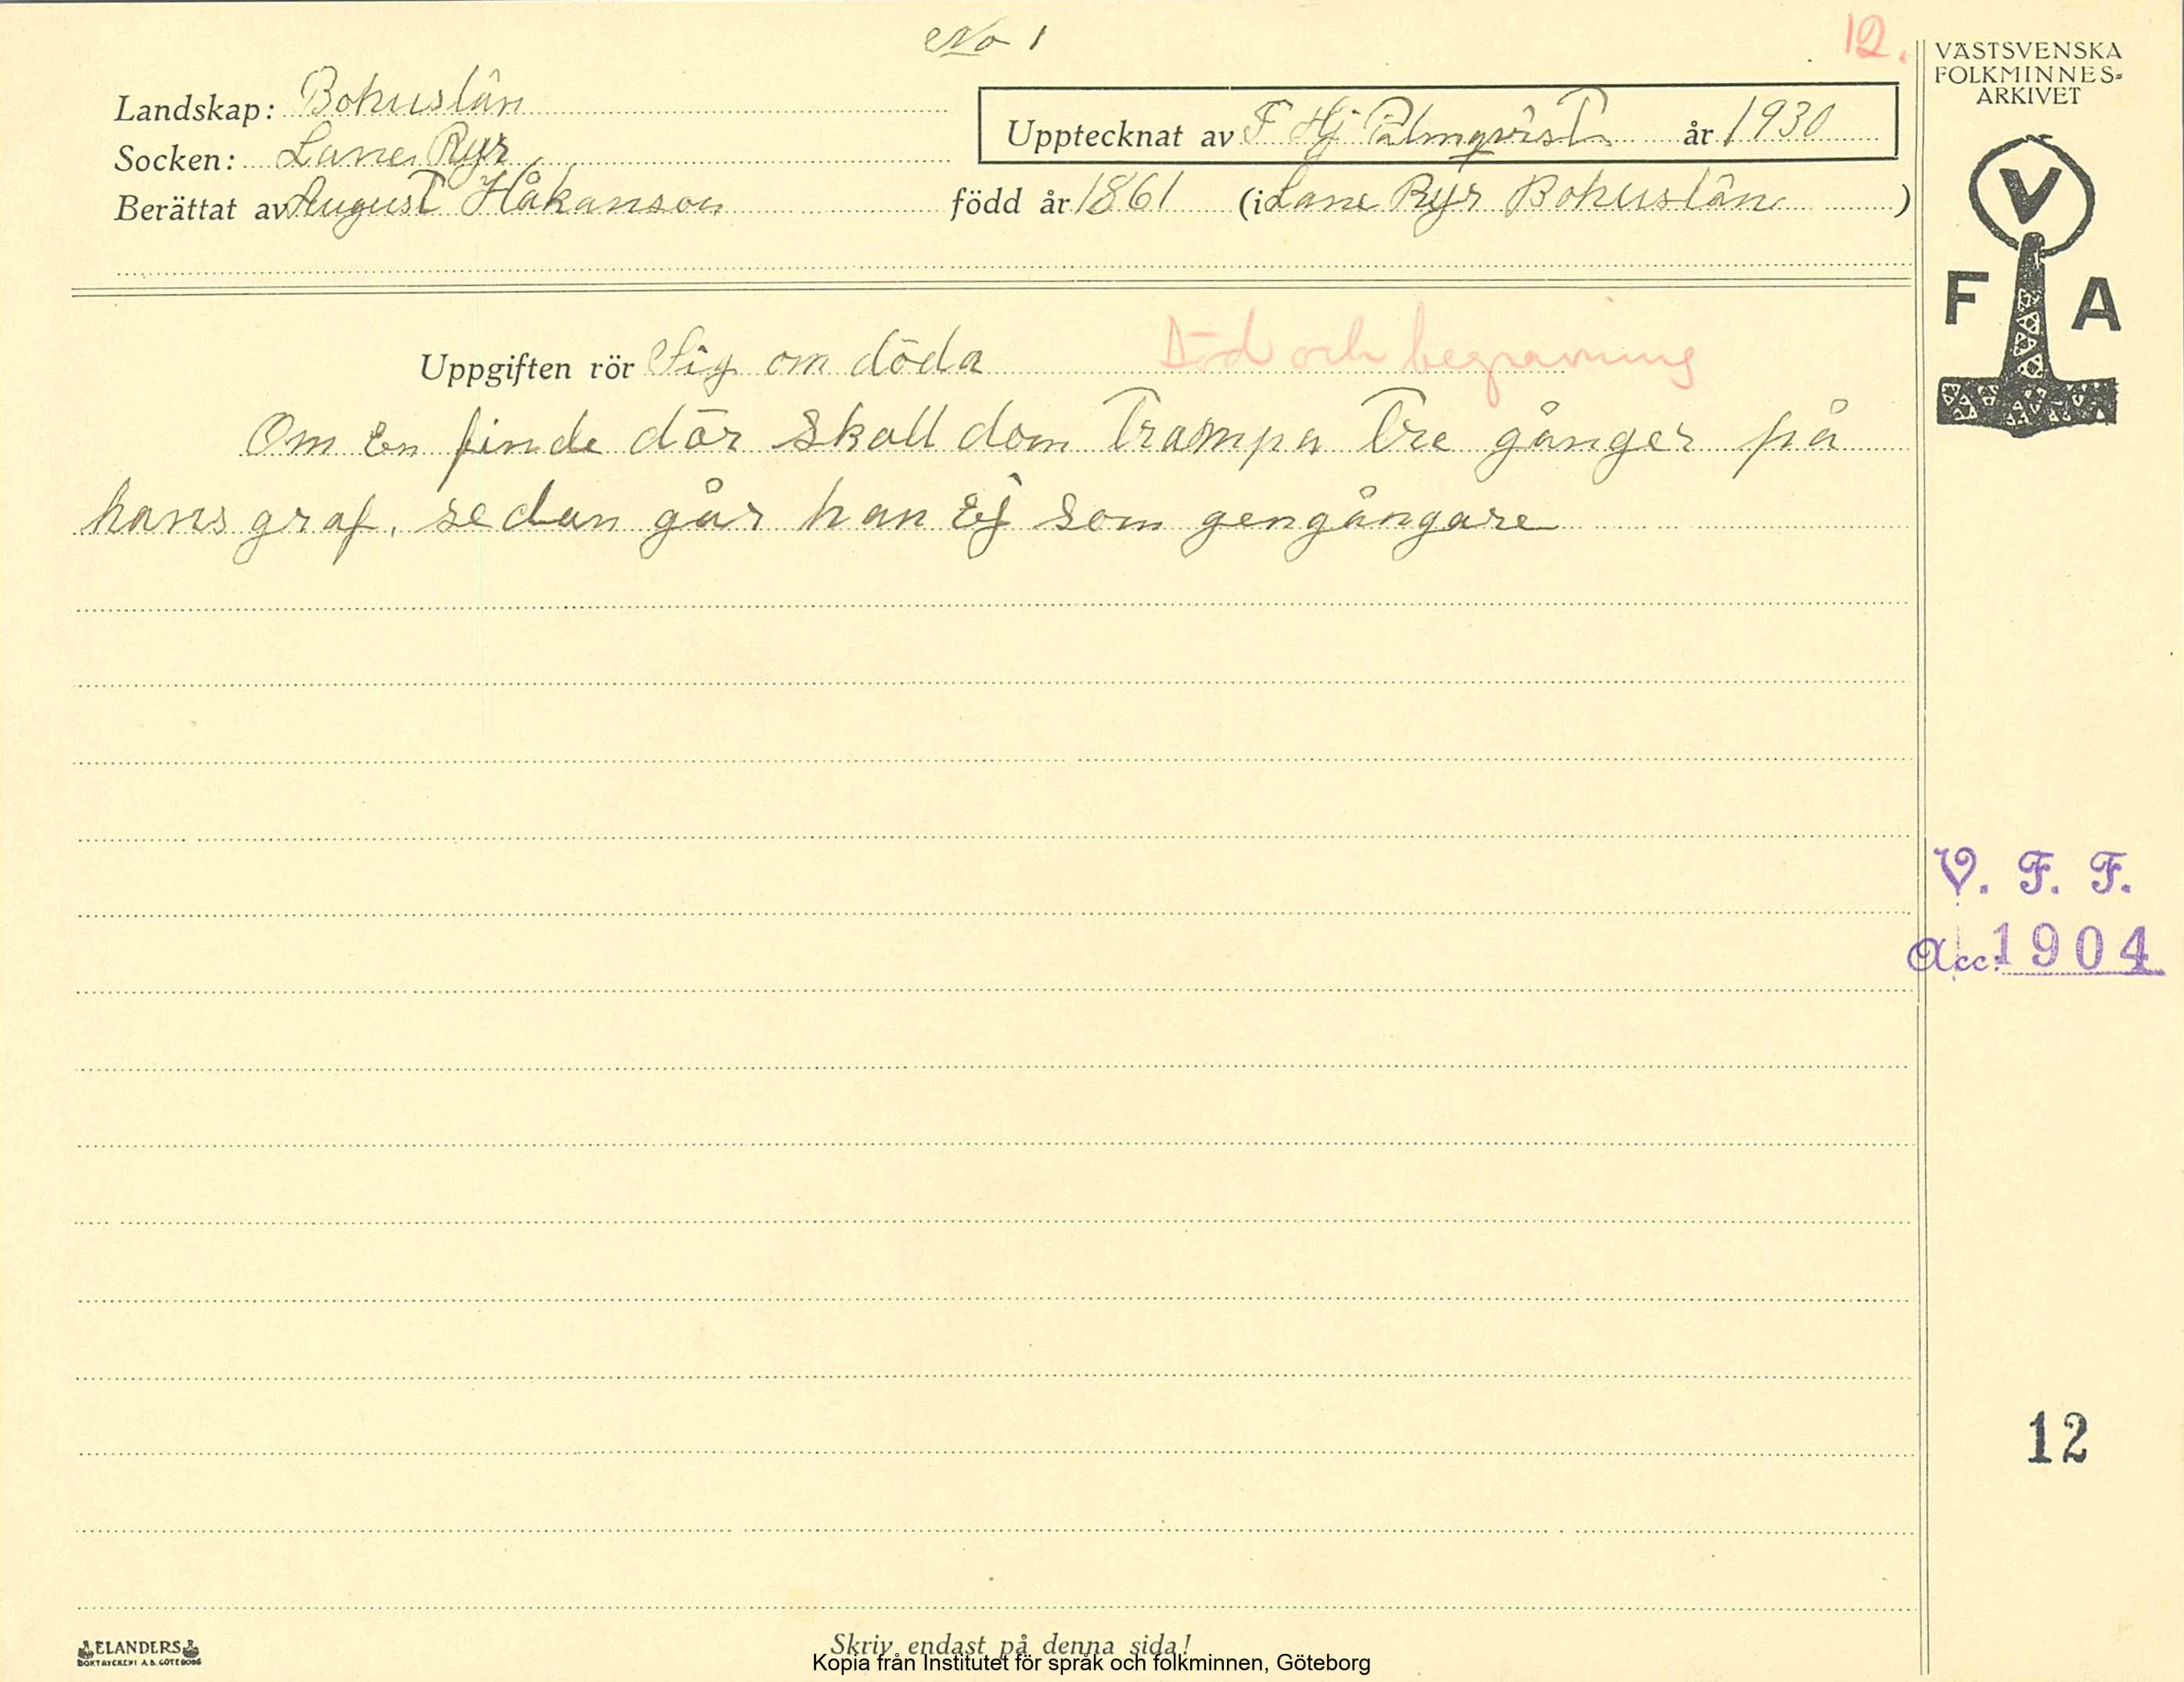 No 1
12.
Landskap: Bohuslän
Socken: Lane Ryr
Upptecknat av F Hj Palmqvist år 1930
Berättat av August Håkanson född år 1861 (i Lane Ryr Bohuslän )
VÄSTSVENSKA
FOLKMINNES-
ARKIVET
V
F A
Uppgiften rör Sig om döda
Död och begravning
Om En finde dör Skall dom Trampa Tre gånger på
hans graf, sedan går han Ej som gengångare
V. F. F.
Acc: 1904
12
ELANDERS
BOKTRYCKERI A.B. GÖTEBORG
Skriv endast på denna sida!
Kopia från Institutet för språk och folkminnen, Göteborg